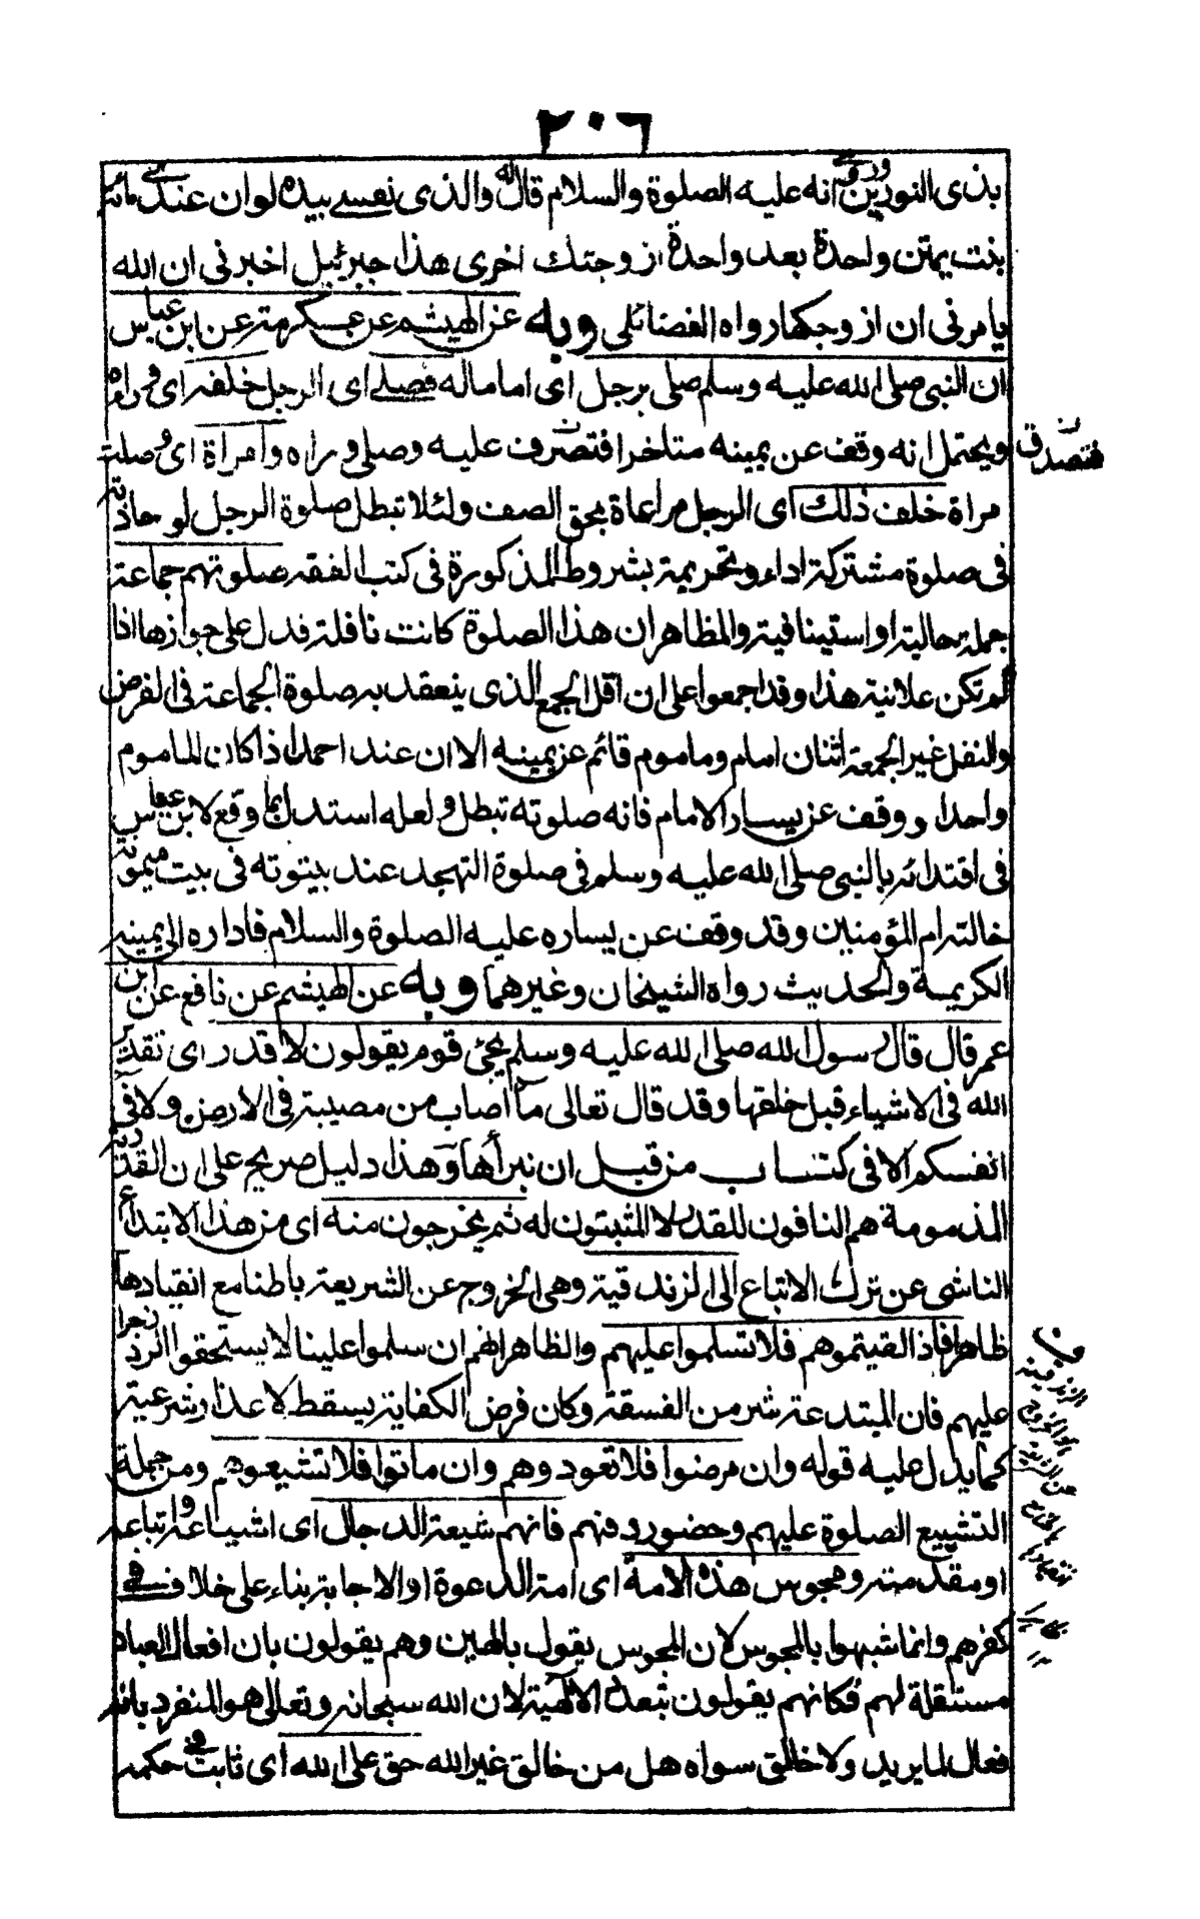 ٢٠٦
بذى النورين وروى انه عليه الصلوة والسلام قال له والذى نفسى بيده لو ان عندى مائة
بنت يمتن واحدة بعد واحدة ازوجتك اخرى هذا جبرئيل اخبرنى ان الله
يامرنى ان ازوجكها رواه الفضائلى وبه عن الهيثم عن عكرمة عن ابن عباس
ان النبى صلى الله عليه وسلم صلى برجل اى اماما له فصلى اى الرجل خلفه اى وراه
ويحتمل انه وقف عن يمينه متاخرا فتصرف عليه وصلى وراه وامراة اى وصلت
مراة خلف ذلك اى الرجل مراعاة بحق الصف ولئلا تبطل صلوة الرجل لو حاذته
فى صلوة مشتركة اداء وتحريمة بشروط المذكورة فى كتب الفقه صلوتهم جماعة
جملة حالية او استينافية والمظاهر ان هذا الصلوة كانت نافلة فدل على جوازها اذا
لم تكن علانية هذا وقد اجمعوا على ان اقل الجمع الذى ينعقد به صلوة الجماعة فى الفرض
والنفل غير الجمعة اثنان امام وماموم قائم عن يمينه الا ان عند احمد اذا كان الماموم
واحدا ووقف عن يسار الامام فانه صلوته تبطل ولعله استدل بما وقع لابن عباس
فى اقتدائه بالنبى صلى الله عليه وسلم فى صلوة التهجد عند بيتوته فى بيت ميمونة
خالته ام المؤمنين وقد وقف عن يساره عليه الصلوة والسلام فاداره الى يمينه
الكريمة والحديث رواه الشيخان وغيرهما وبه عن الهيثم عن نافع عن ابن
عمر قال قال رسول الله صلى الله عليه وسلم يجئ قوم يقولون لا قدر اى تقدير
الله فى الاشياء قبل خلقها وقد قال تعالى ما اصاب من مصيبة فى الارض ولا فى
انفسكم الا فى كتاب من قبل ان نبرأها وهذا دليل صريح على ان القدرية
المذمومة هم النافون للقدر لا المثبتون له ثم يخرجون منه اى من هذا الابتداع
الناشى عن ترك الاتباع الى الزندقية وهى الخروج عن الشريعة باطنا مع انقيادها
ظاهرا فاذا لقيتموهم فلا تسلموا عليهم والظاهر انهم ان سلموا علينا لا يستحقوا الرد زجرا
عليهم فان المبتدعة شر من الفسقة وكان فرض الكفاية يسقط لاعذار شرعية
كما يدل عليه قوله وان مرضوا فلا تعودوهم وان ماتوا فلا تشيعوهم ومن جملة
التشييع الصلوة عليهم وحضور دفنهم فانهم شيعة الدجال اى اشياعه واتباعه
او مقدمته ومجوس هذه الامة اى امة الدعوة او الاجابة بناء على خلاف فى
كفرهم وانما شبهوا بالمجوس لان المجوس يقول بالهين وهم يقولون بان افعال العباد
مستقلة لهم فكانهم يقولون بتعدد الالهية لان الله سبحانه وتعالى هو المنفرد بانه
فعال لما يريد ولا خالق سواه هل من خالق غير الله حق على الله اى ثابت فى حكمه
ن
فتصدق